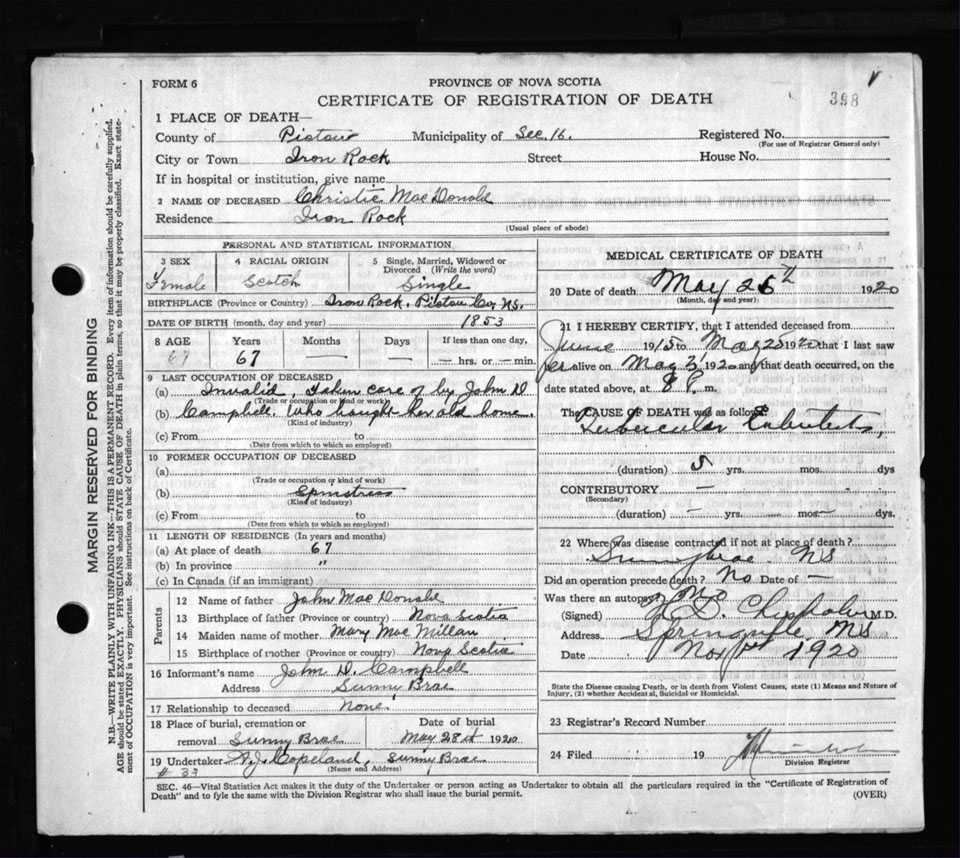 FORM 6
PROVINCE OF NOVA SCOTIA
CERTIFICATE OF REGISTRATION OF DEATH
398
1 PLACE OF DEATH—
County of Pictou Municipality of Sec. 16. Registered No.
(For use of Registrar General only)
City or Town Iron Rock Street House No.
If in hospital or institution, give name
2 NAME OF DECEASED Christie MacDonald
Residence Iron Rock
(Usual place of abode)
PERSONAL AND STATISTICAL INFORMATION
3 SEX
Female
4 RACIAL ORIGIN
Scotch
5 Single, Married, Widowed or Divorced (Write the word)
Single
BIRTHPLACE (Province or Country) Iron Rock, Pictou Co, N.S.
DATE OF BIRTH (month, day and year) 1853
8 AGE Years Months Days If less than one day,
67 67 — — — hrs. or — min.
9 LAST OCCUPATION OF DECEASED
(a) Invalid, taken care of by John D
(Trade or occupation or kind of work)
(b) Campbell, who bought her old home.
(Kind of industry)
(c) From to
(Date from which to which so employed)
10 FORMER OCCUPATION OF DECEASED
(a)
(Trade or occupation or kind of work)
(b)
(Kind of industry)
(c) From to
(Date from which to which so employed)
11 LENGTH OF RESIDENCE (In years and months)
(a) At place of death 67
(b) In province "
(c) In Canada (if an immigrant)
Parents
12 Name of father John MacDonald
13 Birthplace of father (Province or country) Nova Scotia
14 Maiden name of mother Mary MacMillan
15 Birthplace of mother (Province or country) Nova Scotia
16 Informant's name John D. Campbell
Address Sunny Brae
17 Relationship to deceased None
18 Place of burial, cremation or removal Sunny Brae
Date of burial May 28th 1920
19 Undertaker A.J. Copeland, Sunny Brae
(Name and Address)
# 37
MEDICAL CERTIFICATE OF DEATH
20 Date of death May 25th 1920
(Month, day and year)
21 I HEREBY CERTIFY, that I attended deceased from
June 1915 to May 25 1920 that I last saw
her alive on May 3 1920 and that death occurred, on the
date stated above, at 8 P. m.
The CAUSE OF DEATH was as follows:
Tubercular
(duration) 5 yrs. mos. dys
CONTRIBUTORY —
(Secondary)
(duration) — yrs. — mos. — dys
22 Where was disease contracted if not at place of death?
Sunnybrae NS
Did an operation precede death? No Date of —
Was there an autopsy? No
(Signed) Chisholm M.D.
Address Springville, NS
Date Nov 1st 1920
State the Disease causing Death, or in death from Violent Causes, state (1) Means and Nature of Injury, (2) whether Accidental, Suicidal or Homicidal.
23 Registrar's Record Number
24 Filed 19
Division Registrar
SEC. 46—Vital Statistics Act makes it the duty of the Undertaker or person acting as Undertaker to obtain all the particulars required in the "Certificate of Registration of
Death" and to fyle the same with the Division Registrar who shall issue the burial permit.
(OVER)
MARGIN RESERVED FOR BINDING
N.B.—WRITE PLAINLY WITH UNFADING INK—THIS IS A PERMANENT RECORD. Every item of information should be carefully supplied.
AGE should be stated EXACTLY. PHYSICIANS should STATE CAUSE OF DEATH in plain terms, so that it may be properly classified. Exact state-
ment of OCCUPATION is very important. See instructions on back of Certificate.